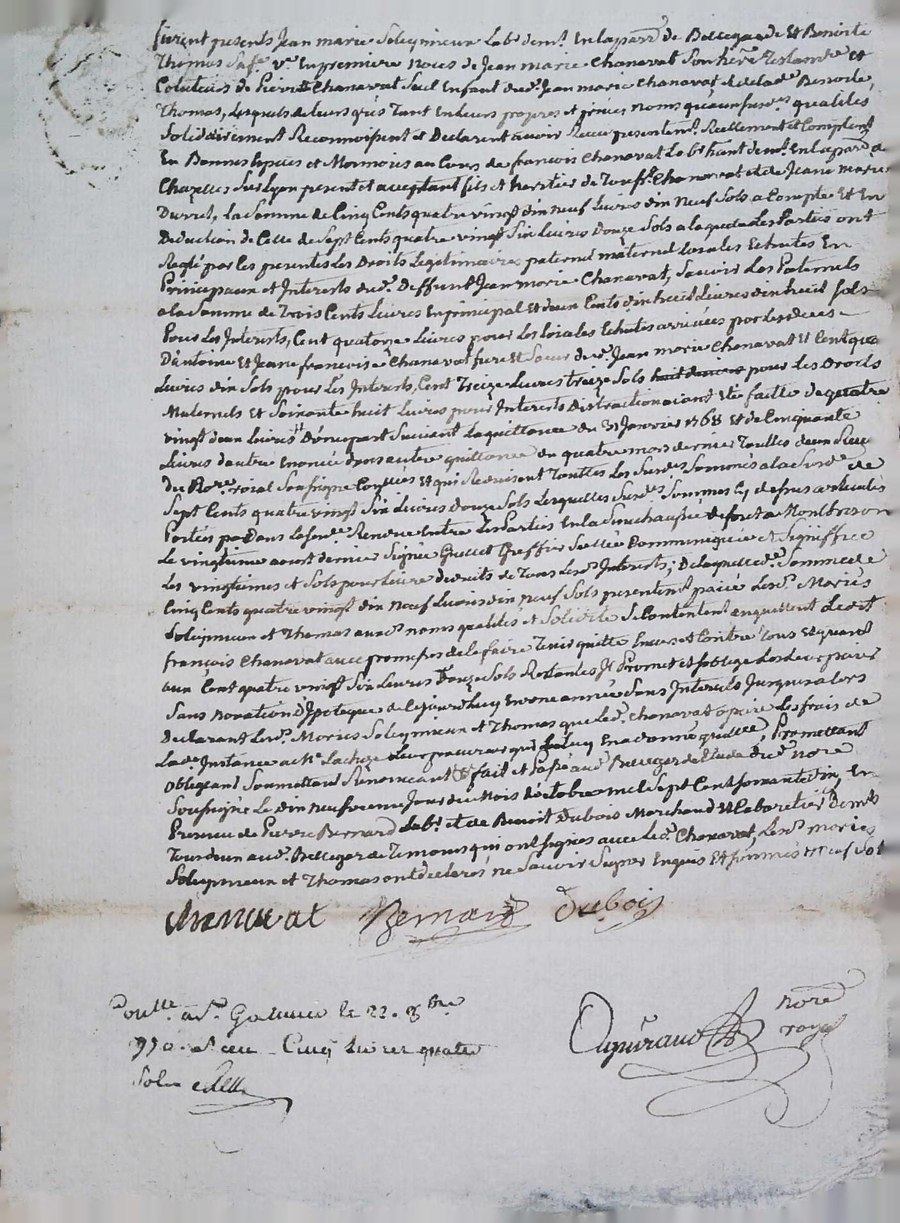 furent presents Jean marie Soleymieux Lab.r dem.t En la parr.e de Bellegarde Et Benoite
Thomas Sa f.e v.e En premiere noces de Jean marie Chanavat Son here Testamt.re et
Coluteurs de Pierre Chanavat Seul Enfant dud. Jean marie Chanavat et de lad.e Benoite
Thomas, Lesquels de Leurs gres Tant En leurs propres et privés noms qu'aux susd. qualités
Solidairement Reconnoissent et Declarent avoir Receu presentem.t Reellement et Comptent
En Bonnes Especes et Monnoies au Cours de françois Chanavat Lab.r hant dem.t En la parr.e de
Chazelles Sur Lyon present et acceptant fils et heritier de Chanavat et de Jeane Marie
Durret, La Somme de Cinq Cents quatre vingt dix neuf Livres dix neuf Sols a Compte Et En
Deduction de Celle de Sept Cents quatre vingt Six Livres Douze Sols a laquelle Les Parties ont
Reglé par les presentes Les Droits Legitimaires paternel maternel Locales Echutes En
Principaux et Interests dud. Deffunt Jean marie Chanavat, Scavoir Les Paternels
a la Somme de Trois Cents Livres En principal Et deux Cents dix huit Livres dix huit Sols
Pour Les Interests, Cent quatorze Livres pour les Locales Echutes arrivées par le deces
D'antoine et Jeane françoise Chanavat frere Et Soeur dud. Jean marie Chanavat Et Cent
Livres dix Sols pour Les Interests, Cent Treize Livres treize Sols pour Les Droits
Maternels Et Soixante huit Livres pour Interests Distraction aiant Eté faitte de quatre
vingt deux Livres D'une part Suivant La quittance du 31 Janvier 1768 Et de Cinquante
Livres d'autre Enoncée dans autre quittance du quatre mars dernier Touttes deux Receu
du No.re roial Soussigné Et qui Reduisent Touttes Les Susd.es Sommes a la Susd.e de
Sept Cents quatre vingt Six Livres Douze Sols Lesquelles Susd.es Sommes
Portées par Dans La Rendue Entre Les Parties En la Senechaussée de forets a Montbrison
Le vingtieme aoust dernier Signée Greffier Scellée Communiquée et Signiffiée
Les vingtiemes et Sols pour Livre deduits de Tous Lesd. Interests; De laquelle d.e Somme de
Cinq Cents quatre vingt dix neuf Livres dix neuf Sols presentem.t paiée Lesd. Mariés
Soleymieux et Thomas auxd. noms qualités et Solidité Se Contentent en quittent Led.
françois Chanavat avec promesse de le faire Tenir quitte Envers et Contre Tous Et quand
aux Cent quatre vingt Six Livres Douze Sols Restantes Il Promet et s'oblige Les Leur paier
Sans novation d'Ipoteque de Ce Jourd'huy En une année Sans Interests Jusqu'alors
Declarant Lesd. Mariés Soleymieux Et Thomas que Led. Chanavat a paié Les frais de
Lad.e Instance a M.e Lachèze Leur procureur qui En a donné quittée, Promettant
Obligeant Soumettant Renonceant fait et Passé aud. Bellegarde Etude dud. no.re
Soussigné Le dix neuf Jour du Mois d'octobre mil Sept Cent soixante dix, En
Presence de Pierre Bernard Lab.r et de Benoit Dubois Marchand Et Cabaretier Dem.ts
Tous deux aud. Bellegarde Temoins qui ont signés avec Led. Chanavat, Lesd. mariés
Soleymieux et Thomas ont declarés ne Scavoir Signer Enquis Et sommés
Chanavat Bernard Dubois
le 22. 8bre
no.re
royal
Cinq Livres quatre
Sols